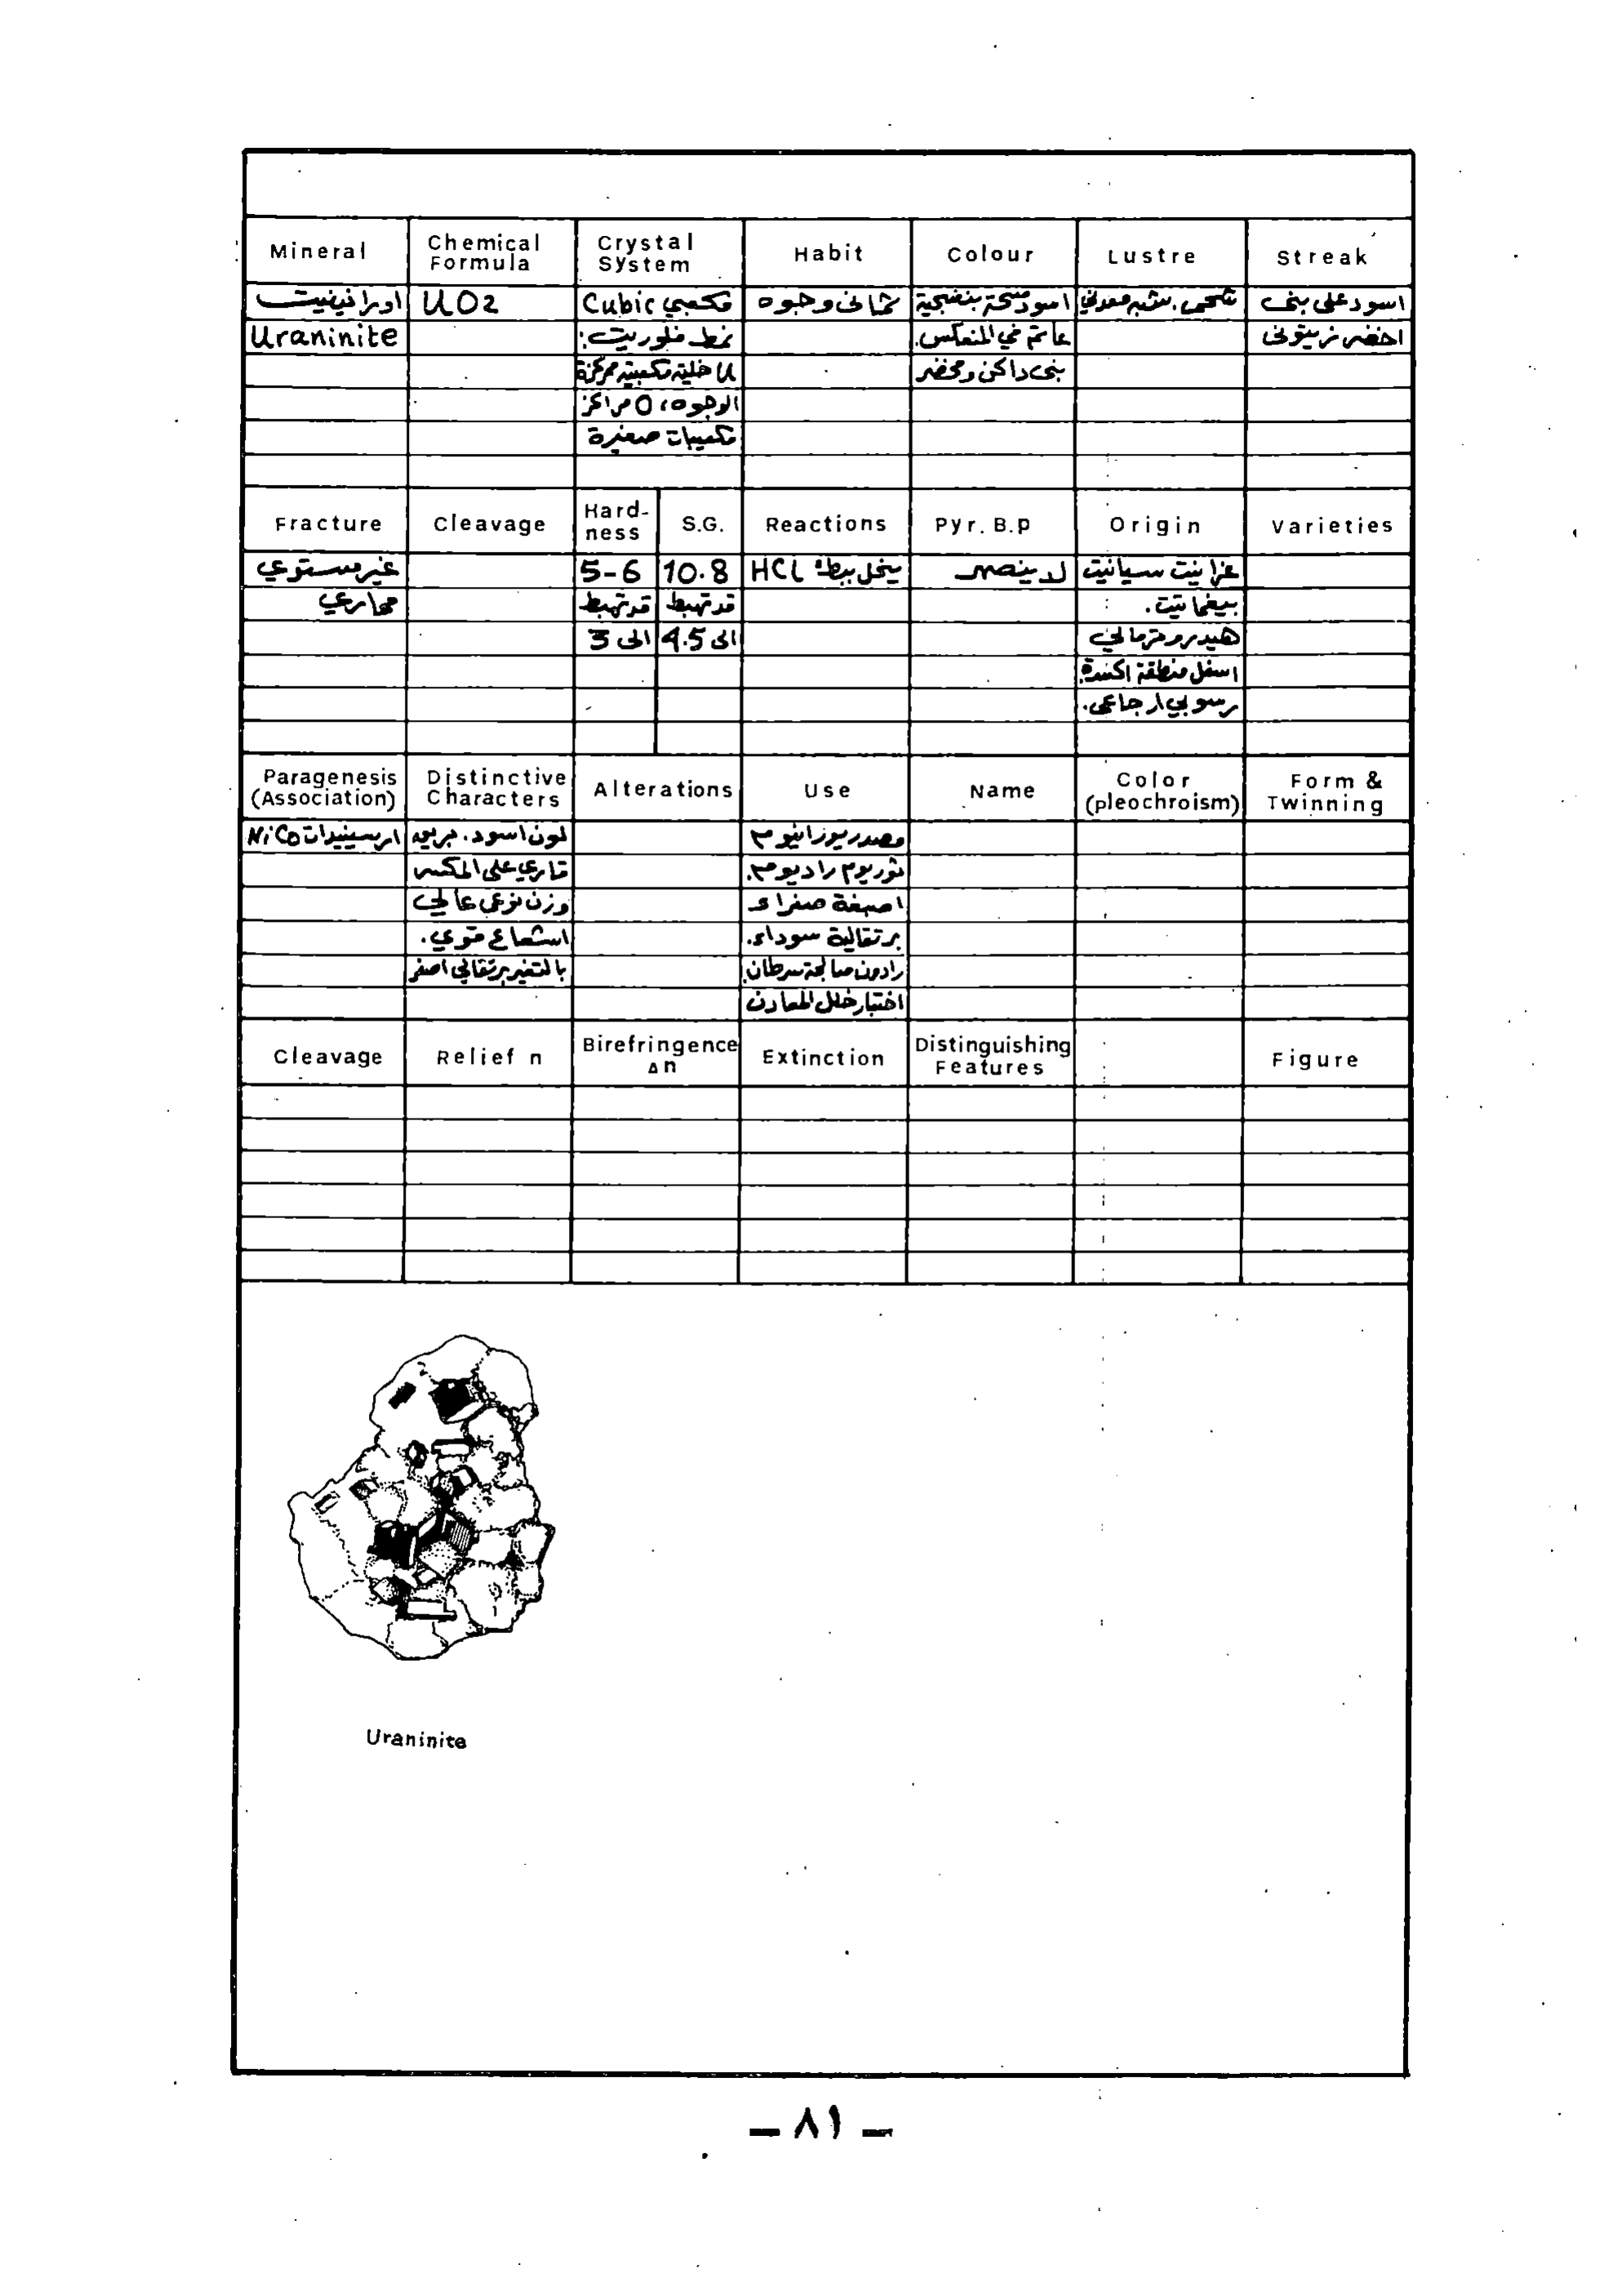 Mineral	Chemical Formula	Crystal System	Habit	Colour	Lustre	Streak
اورانينيت	UO2	Cubic مكعبي	ثماني وجوه	اسود مسحة بنفسجية	شحمي. شبه معدني	اسود على بني
Uraninite		نمط فلوريت:		عاتم في المنعكس.		اخضر زيتوني
U خلية مكعبية ممركزة		بني داكن ومخضر
الوجوه، O مراكز
مكعبات صغيرة
Fracture	Cleavage	Hard-ness	S.G.	Reactions	Pyr. B.p	Origin	Varieties
غير مستوي		5-6	10.8	ينحل ببطء HCL	لا ينصهر	غرانيت سيانيت
محاري		قد تهبط	قد تهبط			بيغماتيت.
الى 3	الى 4.5			هيدروترمالي
اسفل منطقة اكسدة.
رسوبي ارجاعي.
Paragenesis (Association)	Distinctive Characters	Alterations	Use	Name	Color (pleochroism)	Form & Twinning
ارسينيدات NiCo	لون اسود. بريق		مصدر يورانيوم
قاري على المكسر		ثوريوم راديوم.
وزن نوعي عالي		اصبغة صفراء
اشعاع قوي.		برتقالية سوداء.
بالتغير برتقالي اصفر		رادون معالجة سرطان.
اختبار خلل المعادن
Cleavage	Relief n	Birefringence Δn	Extinction	Distinguishing Features		Figure
Uraninite
— ٨١ —